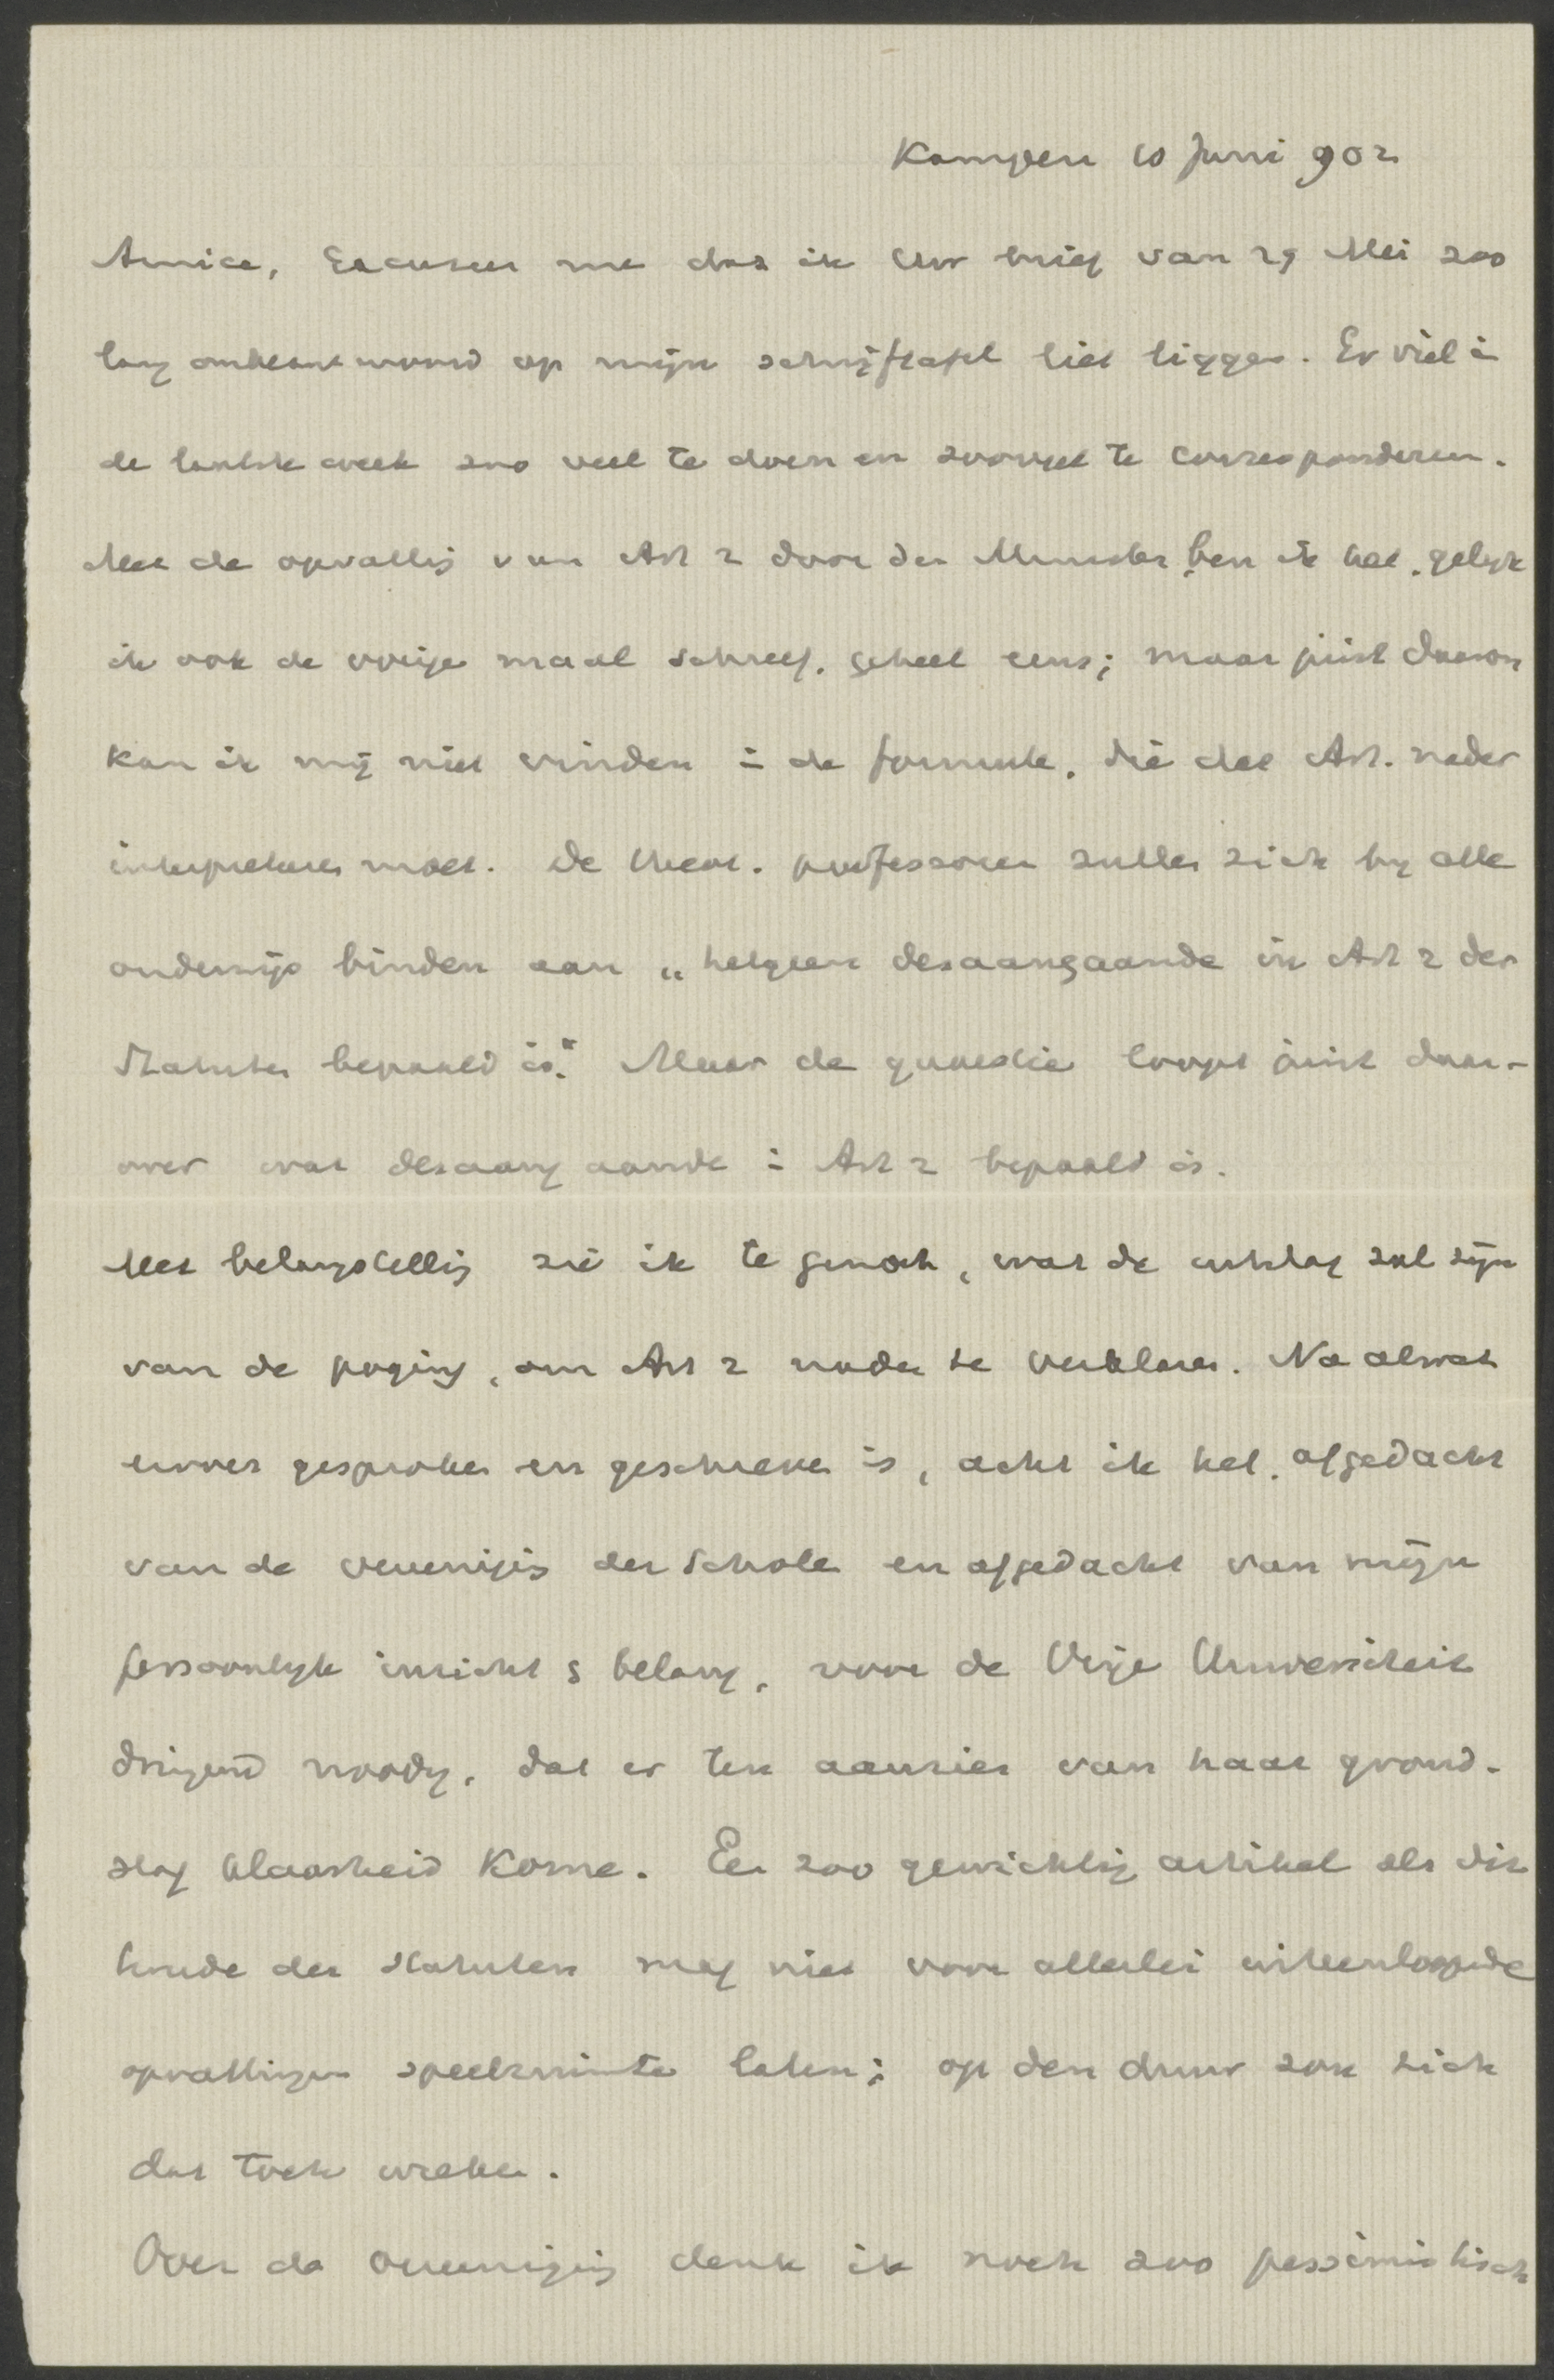 Kampen 10 Juni 902
Amice, Excuseer me dat ik Uw brief van 29 Mei zoo
lang onbeantwoord op mijn schrijftafel liet liggen. Er viel in
de laatste week zoo veel te doen en zooveel te correspondeeren.
Met de opvatting van Art 2 door den Minister ben ik het, gelijk
ik ook de vorige maal schreef, geheel eens; maar juist daarom
kan ik mij niet vinden in de formule, die dat Art. nader
interpreteren moet. De theol. professoren zullen zich bij alle
onderwijs binden aan „hetgeen desaangaande in Art 2 der
Statuten bepaald is." Maar de quaestie loopt juist daar-
over wat desaangaande in Art 2 bepaald is.
Met belangstelling zie ik te gemoet, wat de uitslag zal zijn
van de poging, om Art 2 nader te verklaren. Na al wat
erover gesproken en geschreven is, acht ik het, afgedacht
van de vereeniging der Scholen en afgedacht van mijn
persoonlijk inzicht & belang, voor de Vrije Universiteit
dringend noodig, dat er ten aanzien van haar grond-
slag klaarheid kome. Een zoo gewichtig artikel als dit
tweede der Statuten mag niet voor allerlei uiteenloopende
opvattingen speelruimte laten; op den duur zou zich
dat toch wreken.
Over de vereeniging denk ik noch zoo pessimistisch